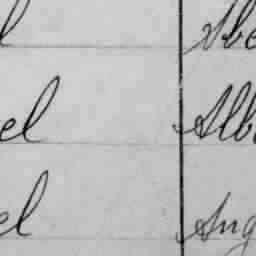 l Abe
el Alb
el Ang